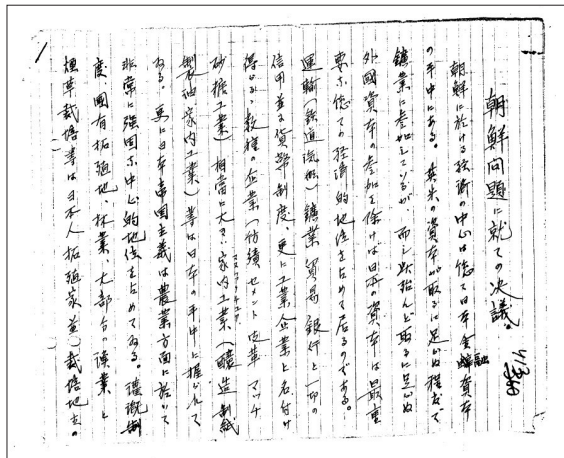 朝鮮問題に就ての決議。
朝鮮に於ける経済の中心は総て日本金融資本
の手中にある。英米、資本が取るに足らぬ程度で
鑛業に参加しているが、而し殆んど取るに足らぬ
外國資本の参加を除けば日本の資本は最重
要な総ての経済的地位を占めて居るのである。
運輸（鉄道汽船）鑛業貿易銀行と一切の
信用並に貨幣制度、更に工業企業と名付け
得らるゝ数種の企業（紡績セメント皮革マッチ
砂糖工業）相當に大きな家内工業（醸造製紙
製油家内工業）等は日本の手中に握られて
ある。更に日本帝国主義は農業方面に於いて
非常に強固な中心的地位を占めてゐる。灌漑制
度、國有拓殖地、林業、大部分の漁業、と
煙草栽培等は日本人拓殖家並に栽培地主の